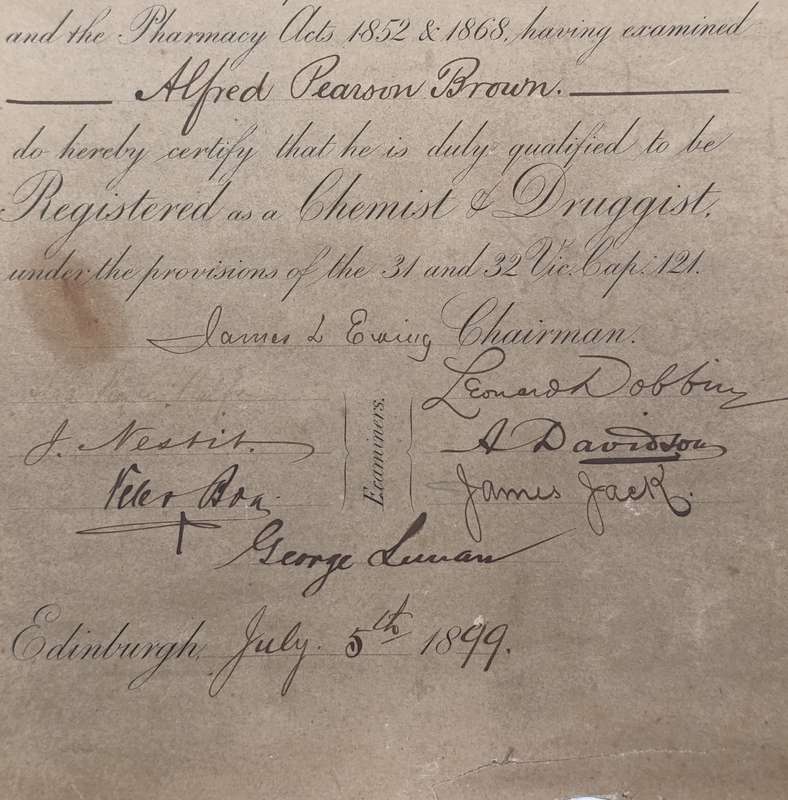 and the Pharmacy Acts 1852 & 1868, having examined
Alfred Pearson Brown.
do hereby certify that he is duly qualified to be
Registered as a Chemist & Druggist,
under the provisions of the 31 and 32 Vic. Cap: 121.
James L Ewing Chairman.
Leonard Dobbin
J. Nesbit.
Examiners.
A Davidson
Peter Boa.
James Jack.
George Lunan
Edinburgh, July. 5th 1899.